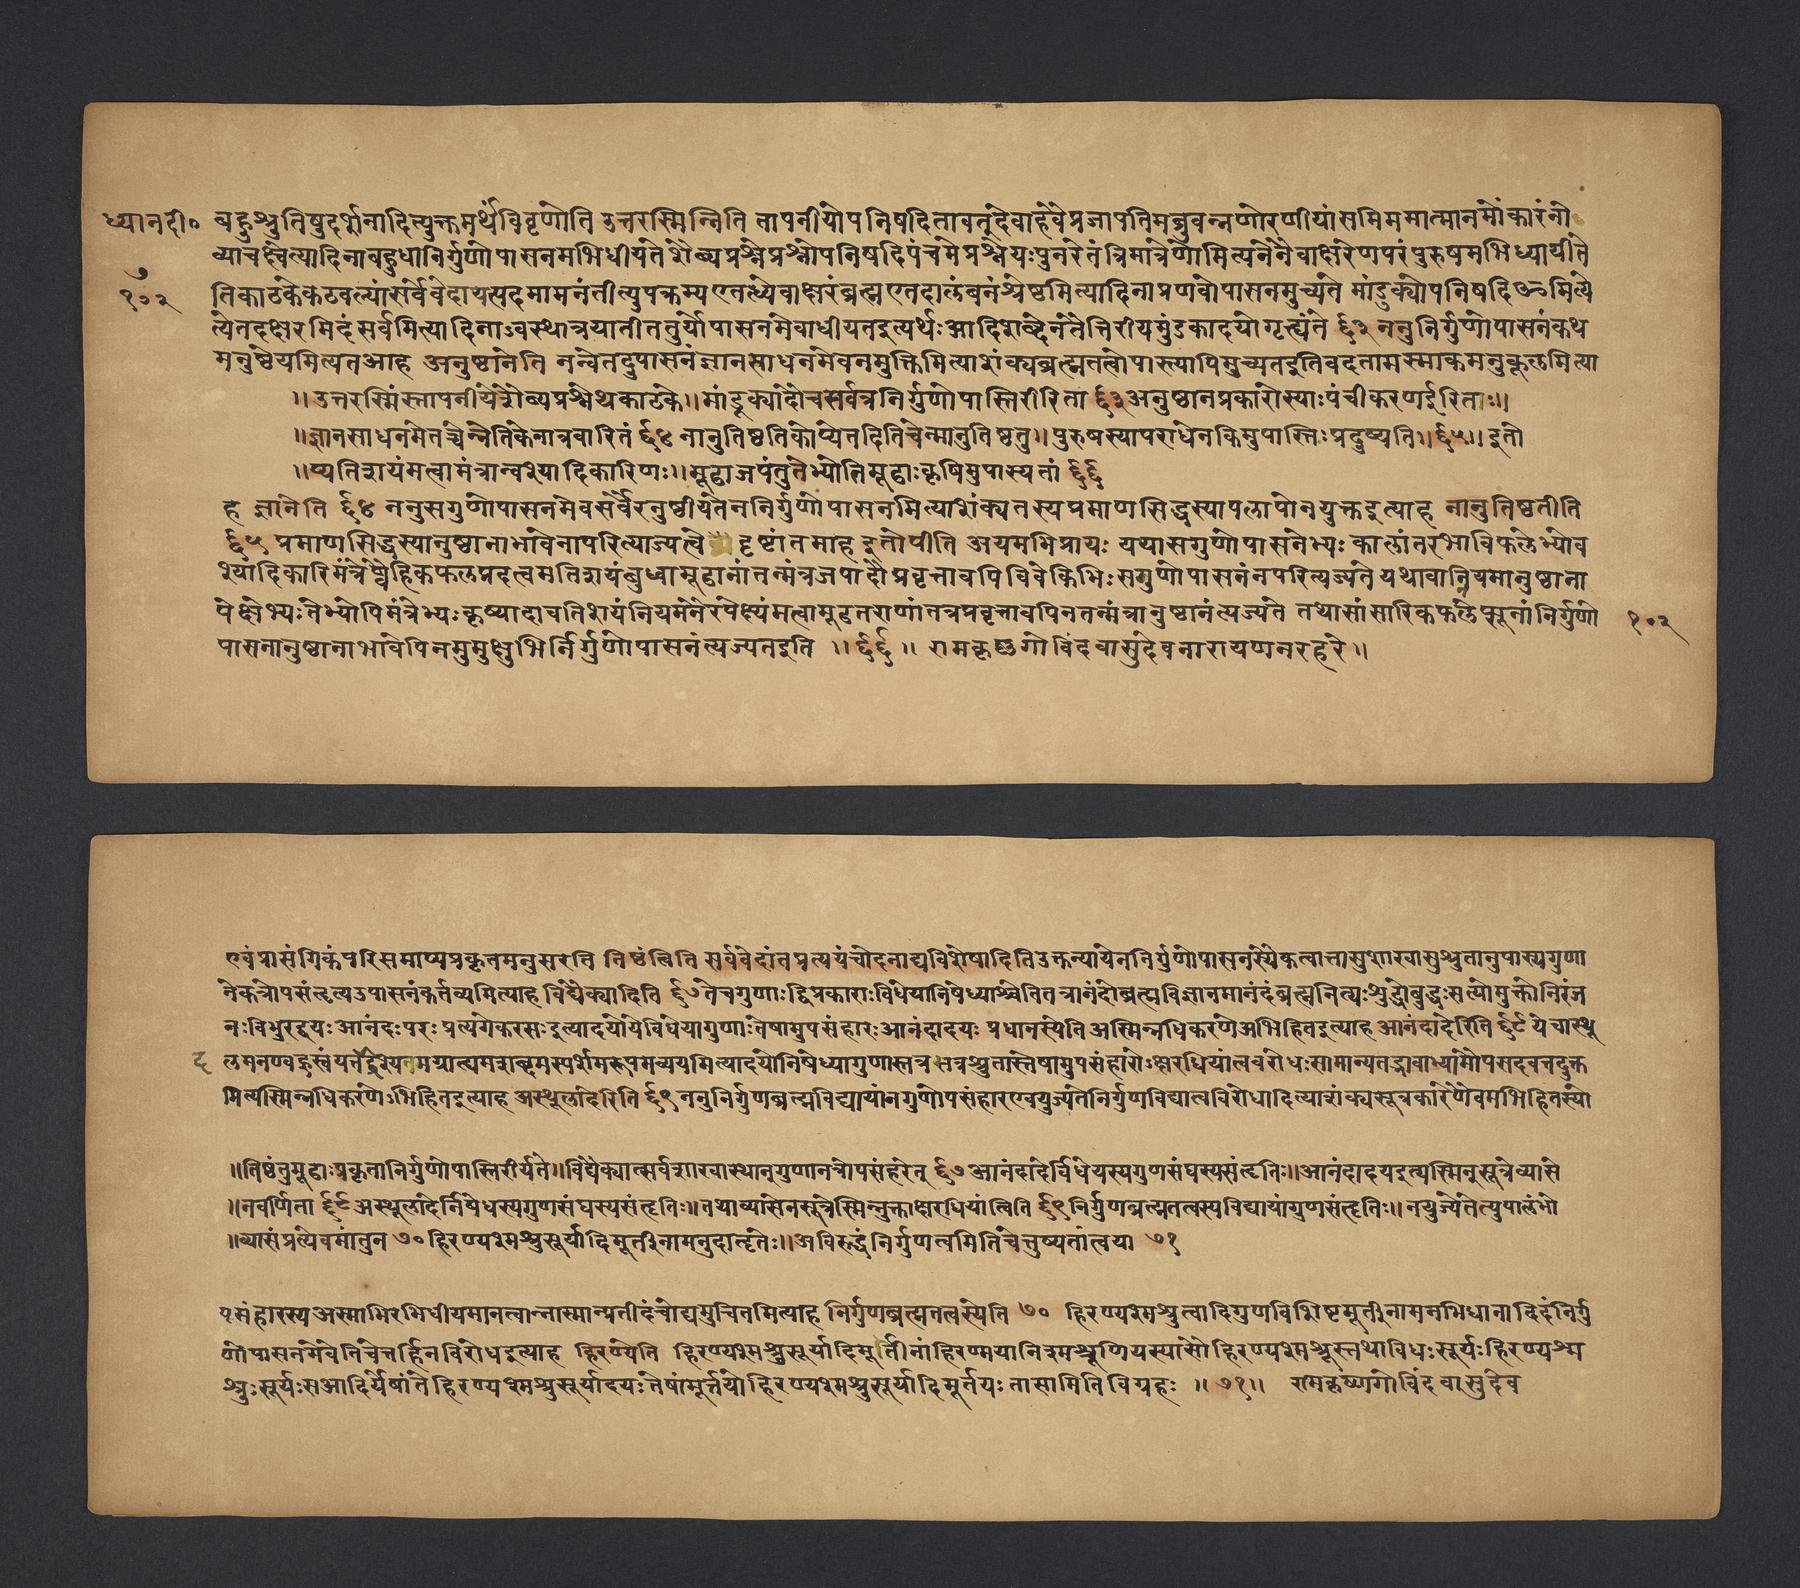 ध्यानदी० बहुश्रुतिषुदर्शनादित्युक्तमर्थंविवृणोति उत्तरस्मिन्निति तापनीयोपनिषदितावत् देवाहवैप्रजापतिमब्रुवन्नणोरणीयांसमिममात्मानमोंकारंनो
व्याचक्ष्वेत्यादिनाबहुधानिर्गुणोपासनमभिधीयते शैव्यप्रश्नेप्रश्नोपनिषदिपंचमेप्रश्नेयःपुनरेतंत्रिमात्रेणोमित्यनेनैवाक्षरेणपरंपुरुषमभिध्यायीते
७
१०२
तिकाठकेकठवल्यांसर्वेवेदायत्पदमामनंतीत्युपक्रम्यएतध्येवाक्षरंब्रह्मएतदालंबनंश्रेष्ठमित्यादिनाप्रणवोपासनमुच्यते मांडुक्योपनिषदिॐमित्ये
त्येतदक्षरमिदंसर्वमित्यादिनाऽवस्थात्रयातीततुर्योपासनमेवाधीयतइत्यर्थःआदिशब्देनतैत्तिरीयमुंडकादयोगृह्यंते ६३ ननुनिर्गुणोपासनंकथ
मनुष्ठेयमित्यतआह अनुष्ठानेति नन्वेतदुपासनंज्ञानसाधनमेवनमुक्तिमित्याशंक्यब्रह्मतत्वोपास्त्यापिमुच्यतइतिवदतामस्माकमनुकूलमित्या
॥उत्तरस्मिंस्तापनीयेशैव्यप्रश्नेथकाठके॥मांडूक्यादौचसर्वत्रनिर्गुणोपास्तिरीरिता ६३अनुष्ठानप्रकारोस्याःपंचीकरणईरिताः॥
॥ज्ञानसाधनमेतच्चेन्नेतिकेनात्रवारितं ६४ नानुतिष्ठतिकोप्येतदितिचेन्मानुतिष्ठतु॥पुरुषस्यापराधेनकिमुपास्तिःप्रदुष्यति॥६५॥इतो
॥प्यतिशयंमत्वामंत्रान्वश्यादिकारिणः॥मूढाजपंतुतेभ्योतिमूढाःकृषिमुपास्यतां ६६
ह ज्ञानेति ६४ ननुसगुणोपासनमेवसर्वैरनुष्ठीयतेननिर्गुणोपासनमित्याशंक्यतस्यप्रमाणसिद्धस्यापलापोनयुक्तइत्याह नानुतिष्ठतीति
६५ प्रमाणसिद्धस्यानुष्ठानाभावेनापरित्याज्यत्वे दृष्टांतमाह इतोपीति अयमभिप्रायः यथासगुणोपासनेभ्यःकालांतरभाविफलेभ्योव
श्यादिकारिमंत्रेष्वैहिकफलप्रदत्वमतिशयंबुध्वामूढानांतन्मंत्रजपादौप्रवृत्तावपिविवेकिभिःसगुणोपासनंनपरित्यज्यते यथावानियमानुष्ठाना
पेक्षेभ्यःतेभ्योपिमंत्रेभ्यःकृष्यादावतिशयंनियमनैरपेक्ष्यंमत्वामूढतराणांतत्रप्रवृत्तावपिनतन्मंत्रानुष्ठानंत्यज्यते तथासांसारिकफलेप्सूनांनिर्गुणो १०२
पासनानुष्ठानाभावेपिनमुमुक्षुभिर्निर्गुणोपासनंत्यज्यतइति ॥६६॥ रामकृष्णगोविंदवासुदेवनारायणनरहरे॥
एवंप्रासंगिकंपरिसमाप्यप्रकृतमनुसरति तिष्ठंत्विति सर्ववेदांतप्रत्ययंचोदनाद्यविशेषादितिउक्तन्यायेननिर्गुणोपासनस्यैकत्वात्तासुशाखासुश्रुतानुपास्यगुणा
नेकत्रोपसंहृत्यउपासनंकर्तव्यमित्याह विद्यैक्यादिति ६७तेचगुणाःद्विप्रकाराःविधेयानिषेध्याश्चेतितत्रानंदोब्रह्मविज्ञानमानंदंब्रह्मनित्यःशुद्धोबुद्धःसत्योमुक्तोनिरंज
नःविभुरद्वयःआनंदःपरःप्रत्यगेकरसःइत्यादयोयेविधेयागुणाःतेषामुपसंहारःआनंदादयःप्रधानस्येतिअस्मिन्नधिकरणेअभिहितइत्याह आनंदादेरिति ६८येचास्थू
लमनण्वह्रस्वंयत्तदद्रेश्यतमग्राह्यमशब्दमस्पर्शमरूपमव्ययमित्यादयोनिषेध्यागुणास्तत्रतत्रश्रुतास्तेषामुपसंहारोऽक्षरधियांत्ववरोधःसामान्यतद्भावाभ्यामौपसदवत्तदुक्त
मित्यस्मिन्नधिकरणेऽभिहितइत्याह अस्थूलादेरिति ६९ ननुनिर्गुणब्रह्मविद्यायांनगुणोपसंहारएवयुज्यतेनिर्गुणविद्यात्वविरोधादित्याशंक्यसूत्रकारेणैवमभिहितस्यो
॥तिष्ठंतुमूढाःप्रकृतानिर्गुणोपास्तिरीर्यते॥विद्यैक्यात्सर्वशाखास्थान्गुणानत्रोपसंहरेत् ६७ आनंदादेर्विधेयस्यगुणसंघस्यसंहृतिः॥आनंदादयइत्यस्मिन्सूत्रेव्यासे
॥नवर्णिता ६८ अस्थूलादेर्निषेधस्यगुणसंघस्यसंहृतिः॥तथाव्यासेनसूत्रेस्मिन्नुक्ताक्षरधियांत्विति ६९निर्गुणब्रह्मतत्वस्यविद्यायांगुणसंहृतिः॥नयुज्येतेत्युपालंभो
॥व्यासंप्रत्येवमांतुन ७०हिरण्यश्मश्रुसूर्यादिमूर्तीनामनुदाहृतेः॥अविरुद्धंनिर्गुणत्वमितिचेत्तुष्यतांत्वया ७१
पसंहारस्यअस्माभिरभिधीयमानत्वान्नास्मान्प्रतीदंचोद्यमुचितमित्याह निर्गुणब्रह्मतत्वस्येति ७० हिरण्यश्मश्रुत्वादिगुणविशिष्टमूर्तीनामनभिधानादिदंनिर्गु
णोपासनमेवेतिचेत्तर्हिनविरोधइत्याह हिरण्येति हिरण्यश्मश्रुसूर्यादिमूर्तीनांहिरण्मयानिश्मश्रूणियस्यासौहिरण्यश्मश्रूस्तथाविधःसूर्यःहिरण्यश्म
श्रुःसूर्यःसआदिर्येषांतेहिरण्यश्मश्रुसूर्यादयःतेषांमूर्त्तयोहिरण्यश्मश्रुसूर्यादिमूर्तयःतासामितिविग्रहः ॥७१॥ रामकृष्णगोविंदवासुदेव